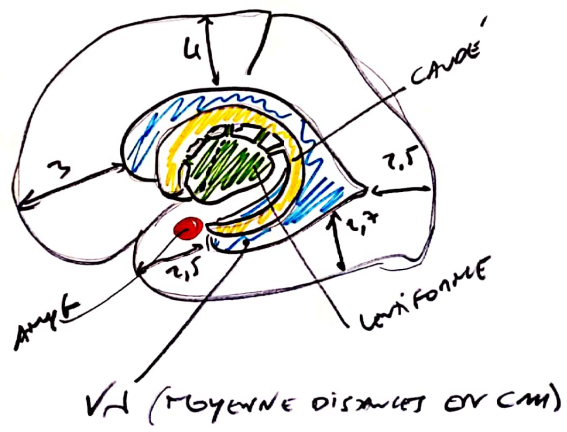 4
CAUDÉ
3
2,5
2,7
2,5
AMYG
LENTIFORME
VL (MOYENNE DISTANCES EN CM)